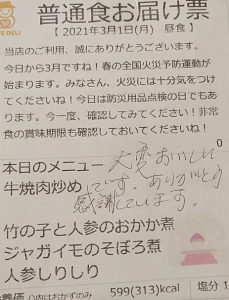 普通食お届け票
【 2021年3月1日(月) 昼食 】
当店のご利用、誠にありがとうございます。
今日から3月ですね！春の全国火災予防運動が
始まります。みなさん、火災には十分気をつけ
てくださいね！今日は防災用品点検の日でもあ
ります。今一度、確認してみてください！非常
食の賞味期限も確認しておいてくださいね！
0
本日のメニュー
大変おいしい
牛焼肉炒め
です。ありがとう
感謝しています。
竹の子と人参のおかか煮
ジャガイモのそぼろ煮
人参しりしり
()内はおかずのみ
599(313)kcal
塩分